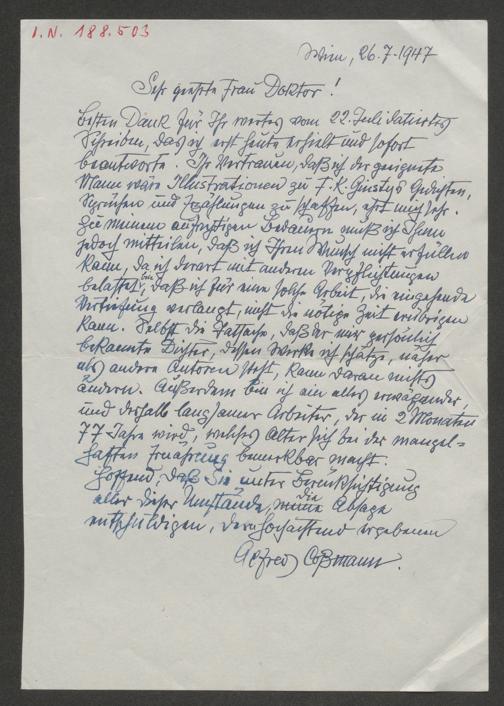 I.N. 188.503
Wien, 26.7.1947
Sehr geehrte Frau Doktor!
Besten Dank für Ihr wertes vom 22. Juli datiertes
Schreiben, das ich erst heute erhielt und sofort
beantworte. Ihr Vertrauen, daß ich der geeignete
Mann wäre Illustrationen zu F. K. Ginzkeys Gedichten,
Sprüchen und Erzählungen zu schaffen, ehrt mich sehr.
Zu meinem aufrichtigen Bedauern muß ich Ihnen
jedoch mitteilen, daß ich Ihren Wunsch nicht erfüllen
kann, da ich derart mit anderen Verpflichtungen
belastet bin, daß ich für eine solche Arbeit, die eingehende
Vertiefung verlangt, nicht die nötige Zeit erübrigen
kann. Selbst die Tatsache, daß der mir persönlich
bekannte Dichter, dessen Werke ich schätze, näher
als andere Autoren steht, kann daran nichts
ändern. Außerdem bin ich ein alles erwägender,
und deshalb langsamer Arbeiter, der in 2 Monaten
77 Jahre wird, welches Alter sich bei der mangel=
haften Ernährung bemerkbar macht.
Hoffend, daß Sie unter Berücksichtigung
aller dieser Umstände, meine die Absage
entschuldigen, Ihr hochachtend ergebener
Alfred Coßmann.